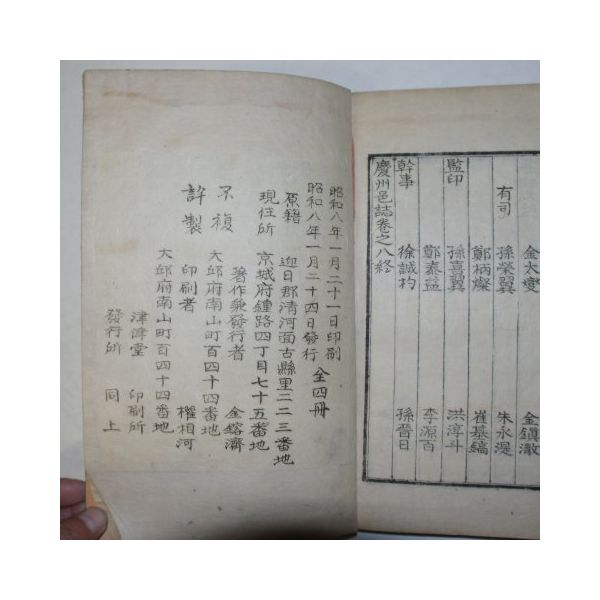 金太燮 金鎮澈
有司 孫榮翼 朱永湜
鄭柄燦 崔基鎬
監印 孫喜翼 洪淳斗
鄭泰益 李源百
幹事 徐誠杓 孫晉日
慶州邑誌卷之八終
昭和八年一月二十一日印刷
昭和八年一月二十四日發行 仝四冊
原籍 迎日郡清河面古縣里二二三番地
現住所 京城府鍾路四丁目七十五番地
著作兼發行者 金鎔濟
不複 大邱府南山町百四十四番地
許製 印刷者 權相河
大邱府南山町百四十四番地
津漳堂 印刷所
發行所 同上